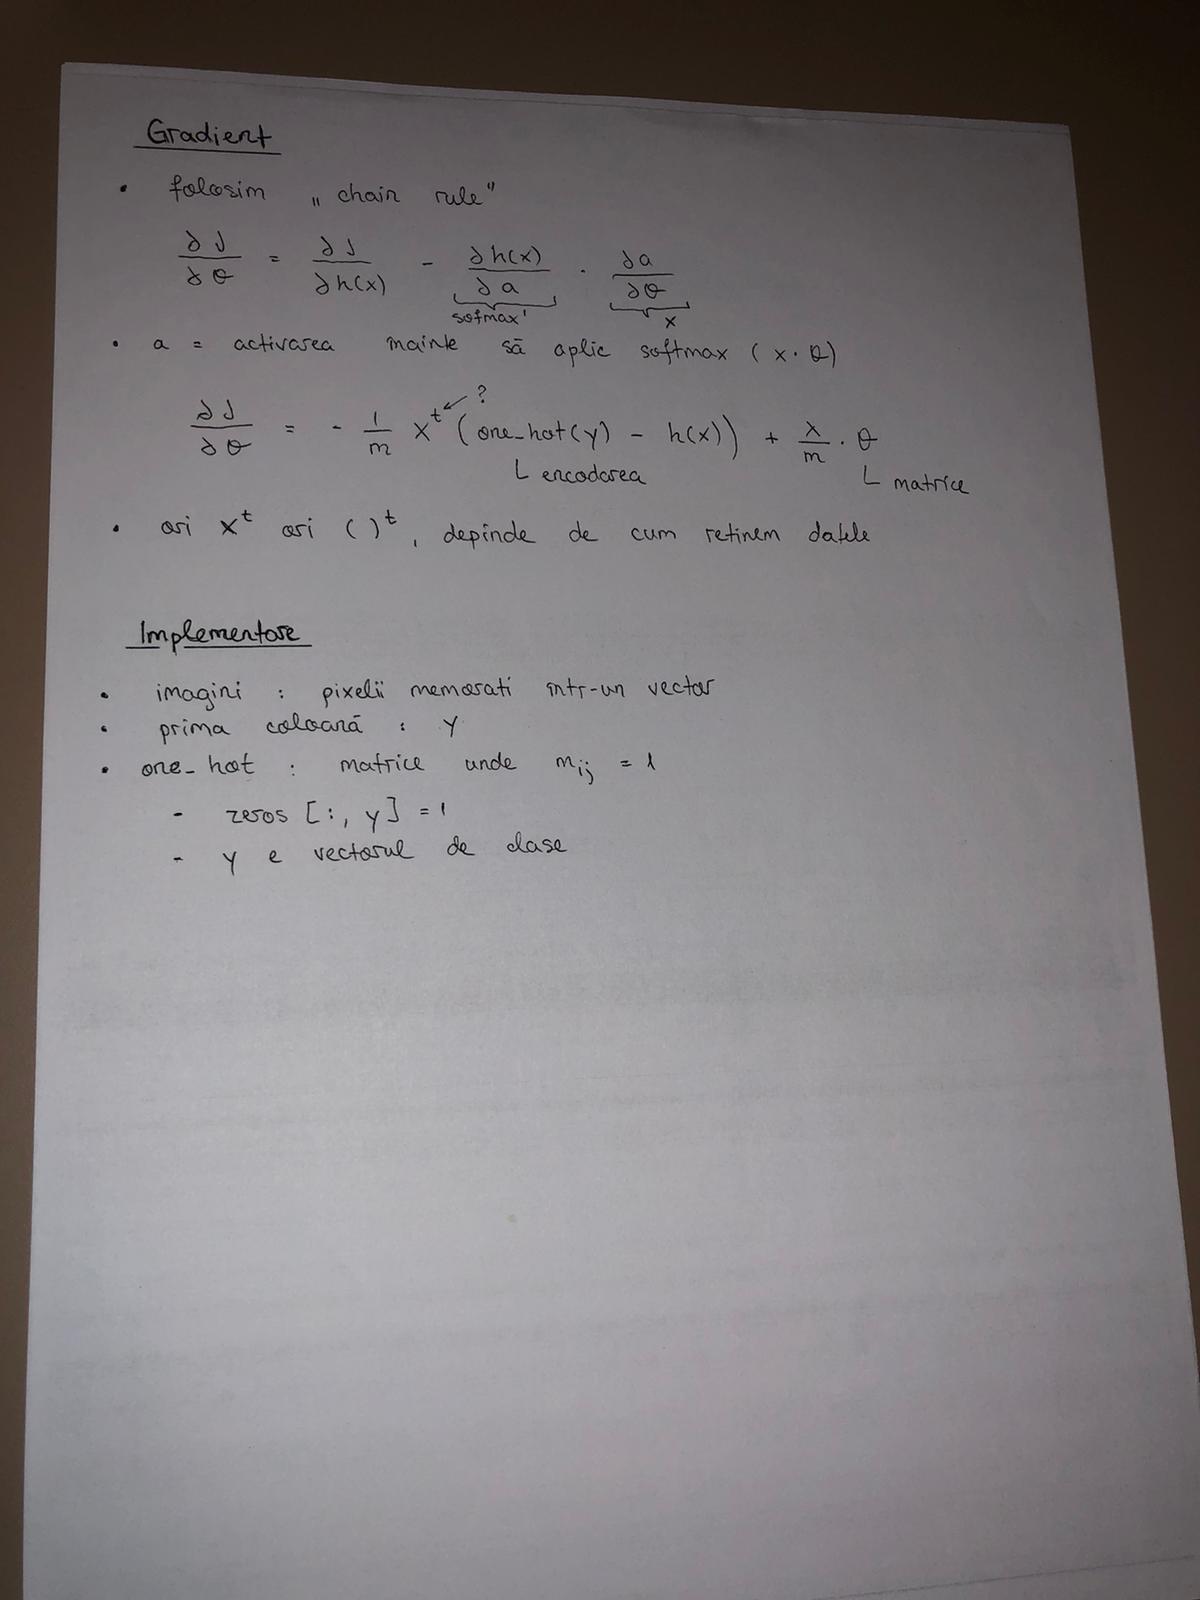 Gradient
• folosim „chain rule"
∂J/∂θ = ∂J/∂h(x) - ∂h(x)/∂a · ∂a/∂θ
sofmax' x
• a = activarea înainte să aplic softmax (x·θ)
?
∂J/∂θ = - 1/m X^t (one_hot(y) - h(x)) + λ/m · θ
L encodarea L matrice
• ori X^t ori ( )^t, depinde de cum retinem datele
Implementare
• imagini : pixelii memorati într-un vector
• prima coloană : y
• one_hot : matrice unde m_ij = 1
- zeros [:, y] = 1
- y e vectorul de clase